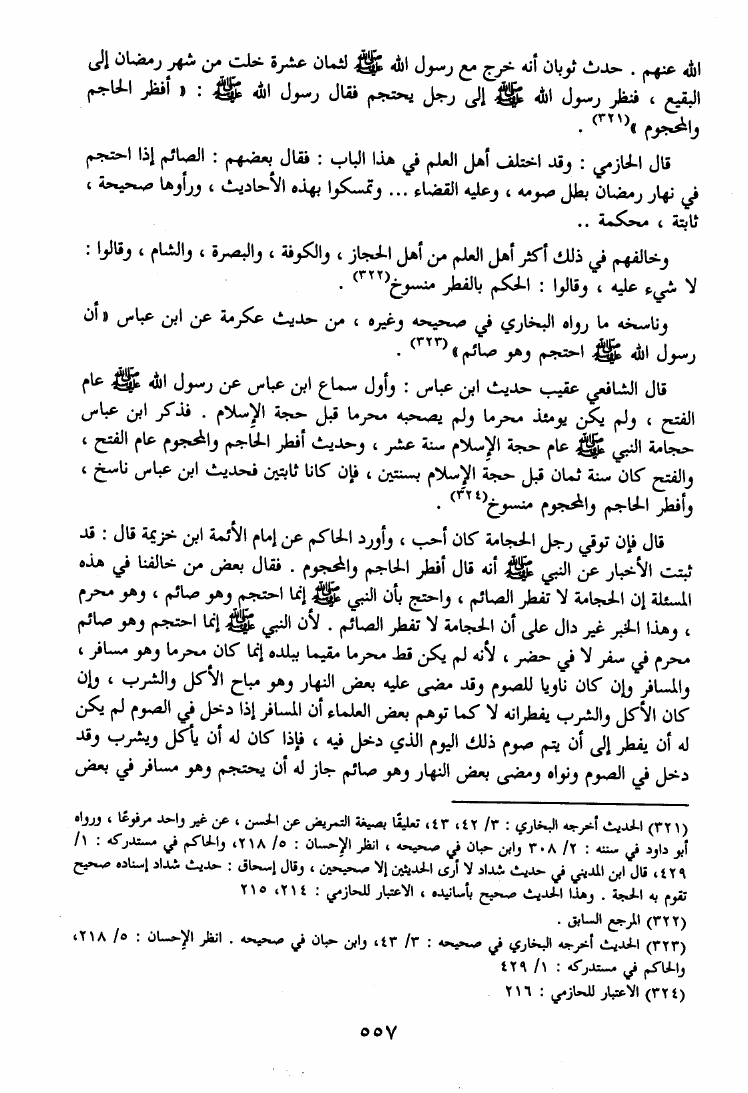 الله عنهم . حدث ثوبان أنه خرج مع رسول الله ﷺ لثمان عشرة خلت من شهر رمضان إلى
البقيع ، فنظر رسول الله ﷺ إلى رجل يحتجم فقال رسول الله ﷺ : « أفطر الحاجم
والمحجوم »(٣٢١) .
قال الحازمي : وقد اختلف أهل العلم في هذا الباب : فقال بعضهم : الصائم إذا احتجم
في نهار رمضان بطل صومه ، وعليه القضاء ... وتمسكوا بهذه الأحاديث ، ورأوها صحيحة ،
ثابتة ، محكمة ..
وخالفهم في ذلك أكثر أهل العلم من أهل الحجاز ، والكوفة ، والبصرة ، والشام ، وقالوا :
لا شيء عليه ، وقالوا : الحكم بالفطر منسوخ(٣٢٢) .
وناسخه ما رواه البخاري في صحيحه وغيره ، من حديث عكرمة عن ابن عباس «أن
رسول الله ﷺ احتجم وهو صائم»(٣٢٣) .
قال الشافعي عقيب حديث ابن عباس : وأول سماع ابن عباس عن رسول الله ﷺ عام
الفتح ، ولم يكن يومئذ محرما ولم يصحبه محرما قبل حجة الإسلام . فذكر ابن عباس
حجامة النبي ﷺ عام حجة الإسلام سنة عشر ، وحديث أفطر الحاجم والمحجوم عام الفتح ،
والفتح كان سنة ثمان قبل حجة الإسلام بسنتين ، فإن كانا ثابتين فحديث ابن عباس ناسخ ،
وأفطر الحاجم والمحجوم منسوخ(٣٢٤) .
قال فإن توقي رجل الحجامة كان أحب ، وأورد الحاكم عن إمام الأئمة ابن خزيمة قال : قد
ثبتت الأخبار عن النبي ﷺ أنه قال أفطر الحاجم والمحجوم . فقال بعض من خالفنا في هذه
المسئلة إن الحجامة لا تفطر الصائم ، واحتج بأن النبي ﷺ إنما احتجم وهو صائم ، وهو محرم
، وهذا الخبر غير دال على أن الحجامة لا تفطر الصائم . لأن النبي ﷺ إنما احتجم وهو صائم
محرم في سفر لا في حضر ، لأنه لم يكن قط محرما مقيما ببلده إنما كان محرما وهو مسافر ،
والمسافر وإن كان ناويا للصوم وقد مضى عليه بعض النهار وهو مباح الأكل والشرب ، وإن
كان الأكل والشرب يفطرانه لا كما توهم بعض العلماء أن المسافر إذا دخل في الصوم لم يكن
له أن يفطر إلى أن يتم صوم ذلك اليوم الذي دخل فيه ، فإذا كان له أن يأكل ويشرب وقد
دخل في الصوم ونواه ومضى بعض النهار وهو صائم جاز له أن يحتجم وهو مسافر في بعض
(٣٢١) الحديث أخرجه البخاري : ٣/ ٤٢، ٤٣، تعليقًا بصيغة التمريض عن الحسن ، عن غير واحد مرفوعًا ، ورواه
أبو داود في سننه : ٢/ ٣٠٨ وابن حبان في صحيحه ، انظر الإحسان : ٥/ ٢١٨، والحاكم في مستدركه : ١/
٤٢٩، قال ابن المديني في حديث شداد لا أرى الحديثين إلا صحيحين ، وقال إسحاق : حديث شداد إسناده صحيح
تقوم به الحجة . وهذا الحديث صحيح بأسانيده ، الاعتبار للحازمي : ٢١٤، ٢١٥
(٣٢٢) المرجع السابق .
(٣٢٣) الحديث أخرجه البخاري في صحيحه : ٣/ ٤٣، وابن حبان في صحيحه . انظر الإحسان : ٥/ ٢١٨،
والحاكم في مستدركه : ١/ ٤٢٩
(٣٢٤) الاعتبار للحازمي : ٢١٦
٥٥٧